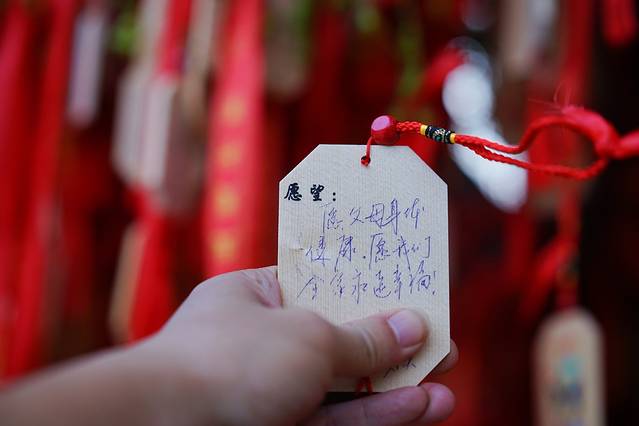 愿望：
愿父母身体
健康.愿我们
全家永远幸福!